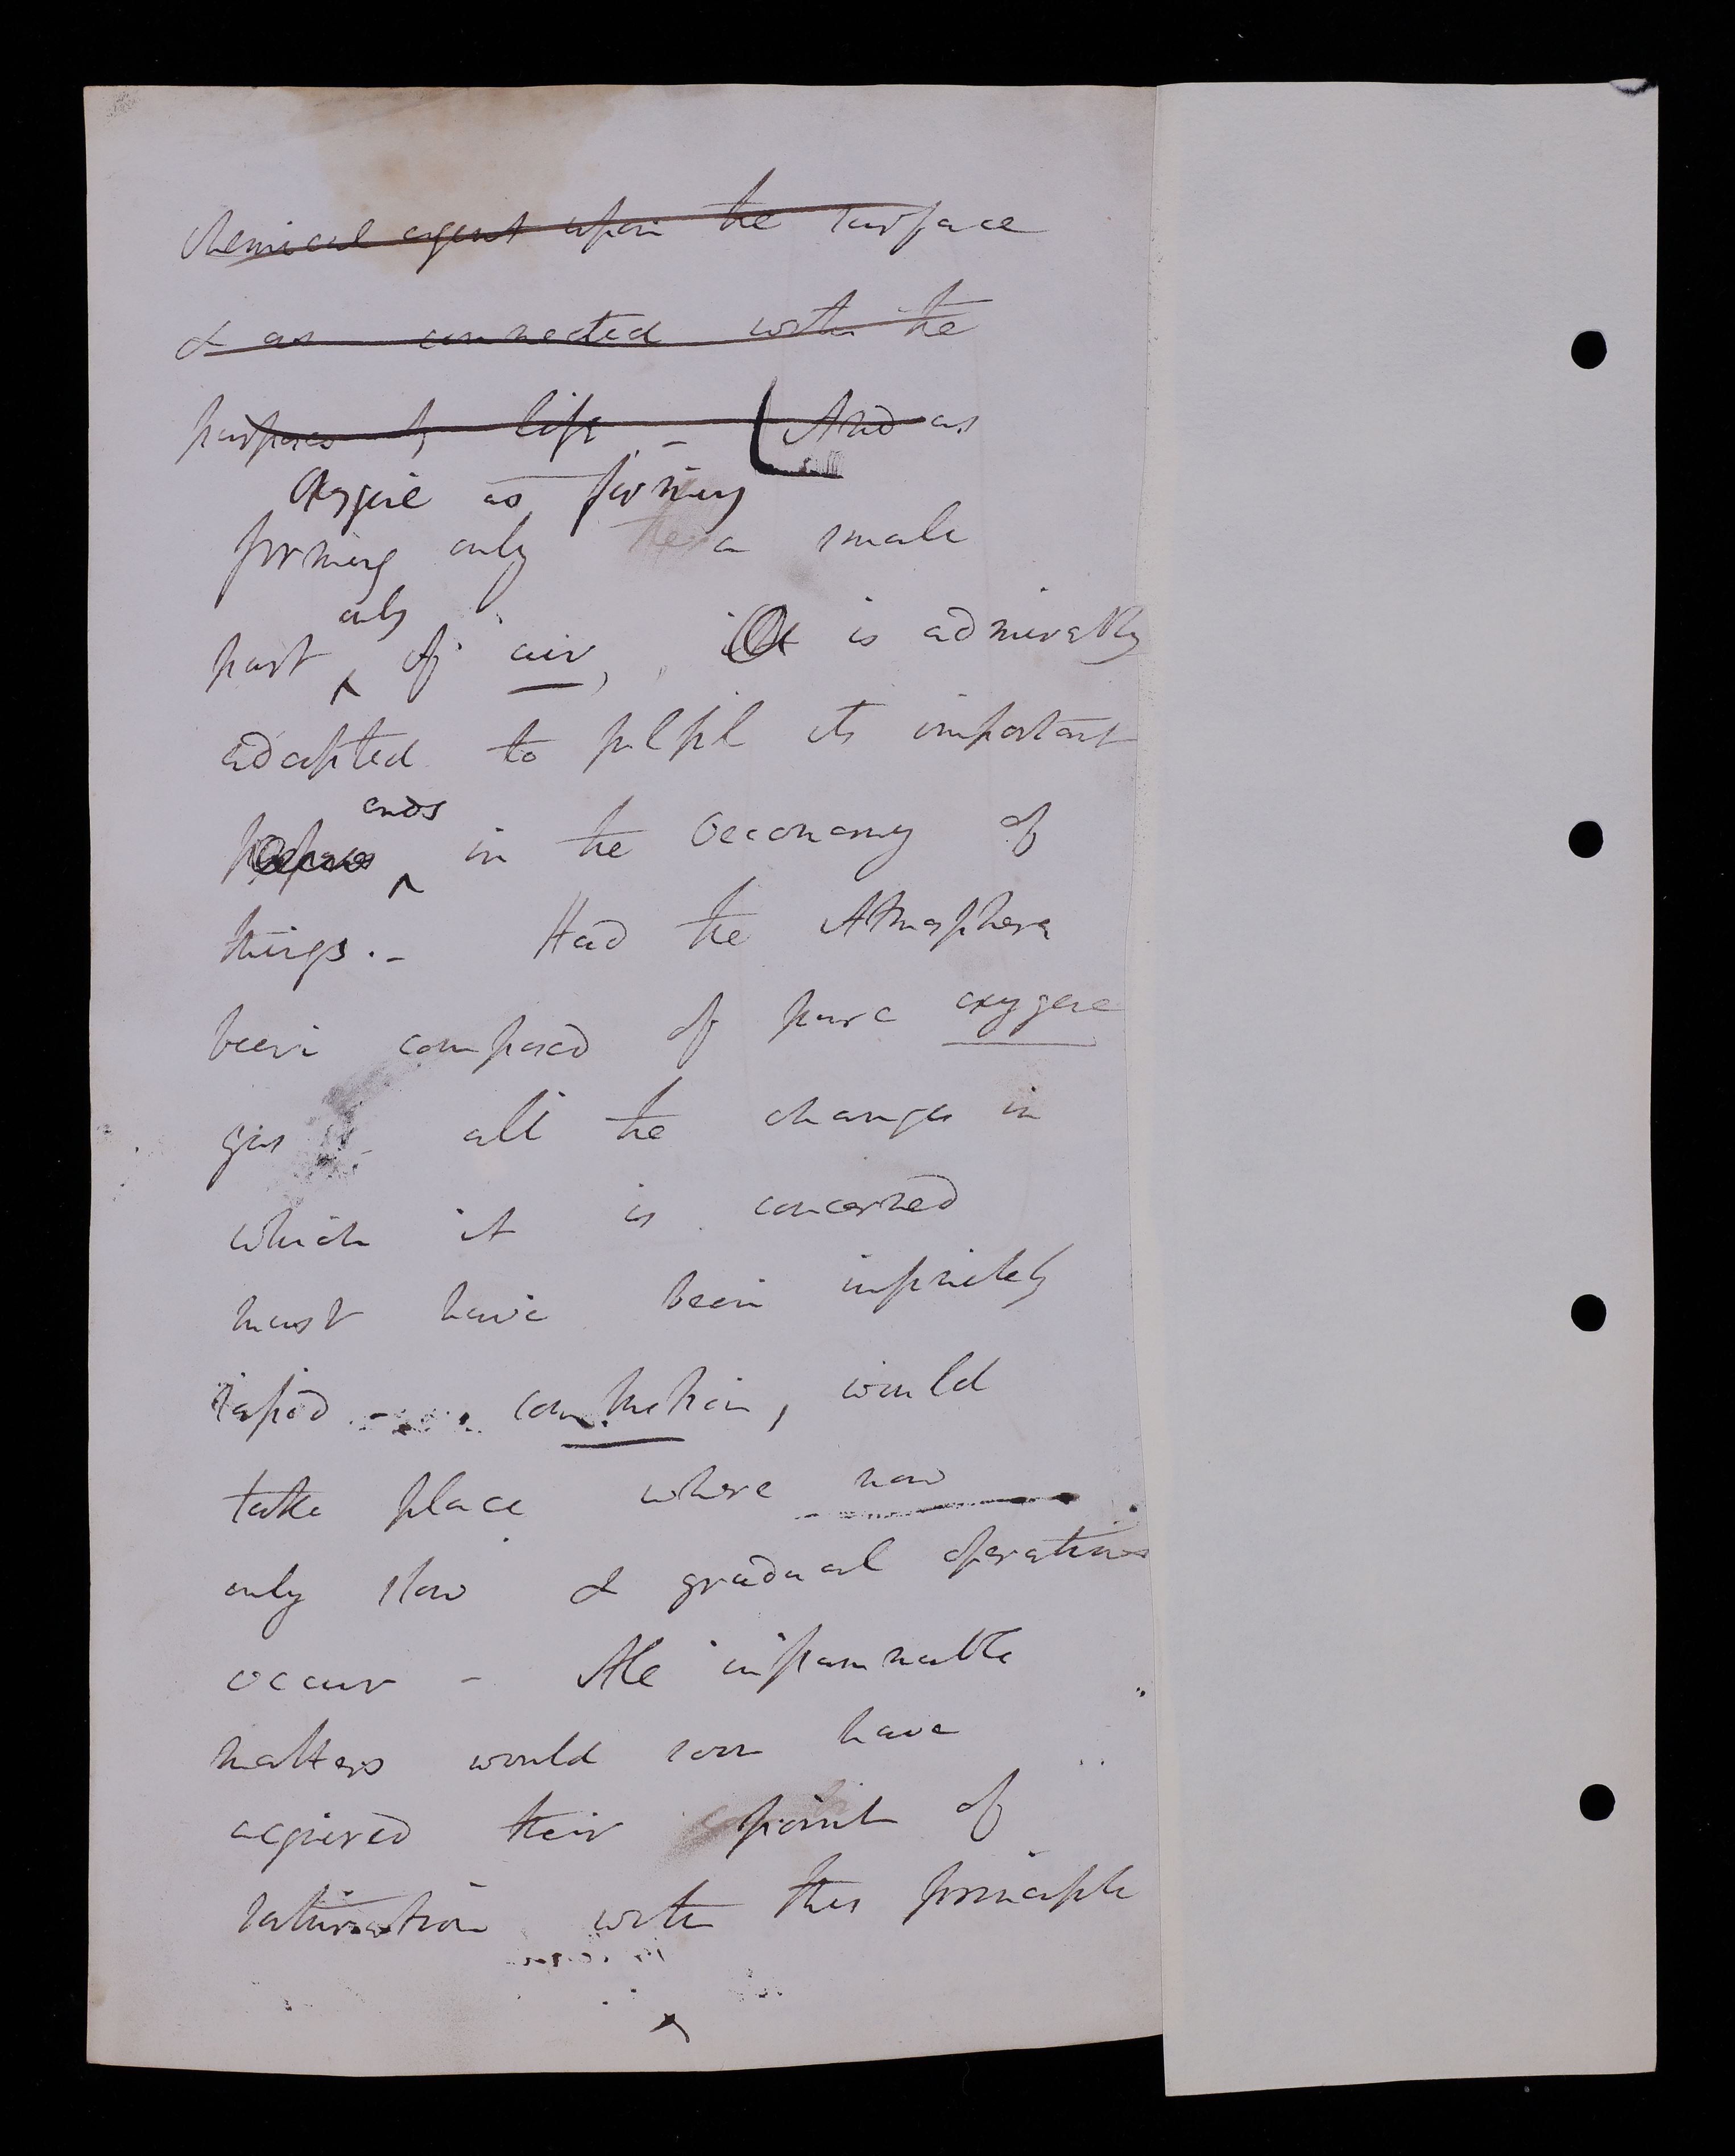 chemical agent upon the surface
& as connected with the
purposes of life - And as
Oxygene as forming
forming only the a small
only
part of air, it is admirably
adapted to fulfil its important
ends
purposes in the Oeconomy of
things.- Had the Atmosphere
been composed of pure oxygene
gas all the changes in
which it is concerned
must have been infinitely
rapid - combustion, would
take place where now
only slow & gradual operations
occur - All inflammable
matters would soon have
acquired their point of
saturation with this principle